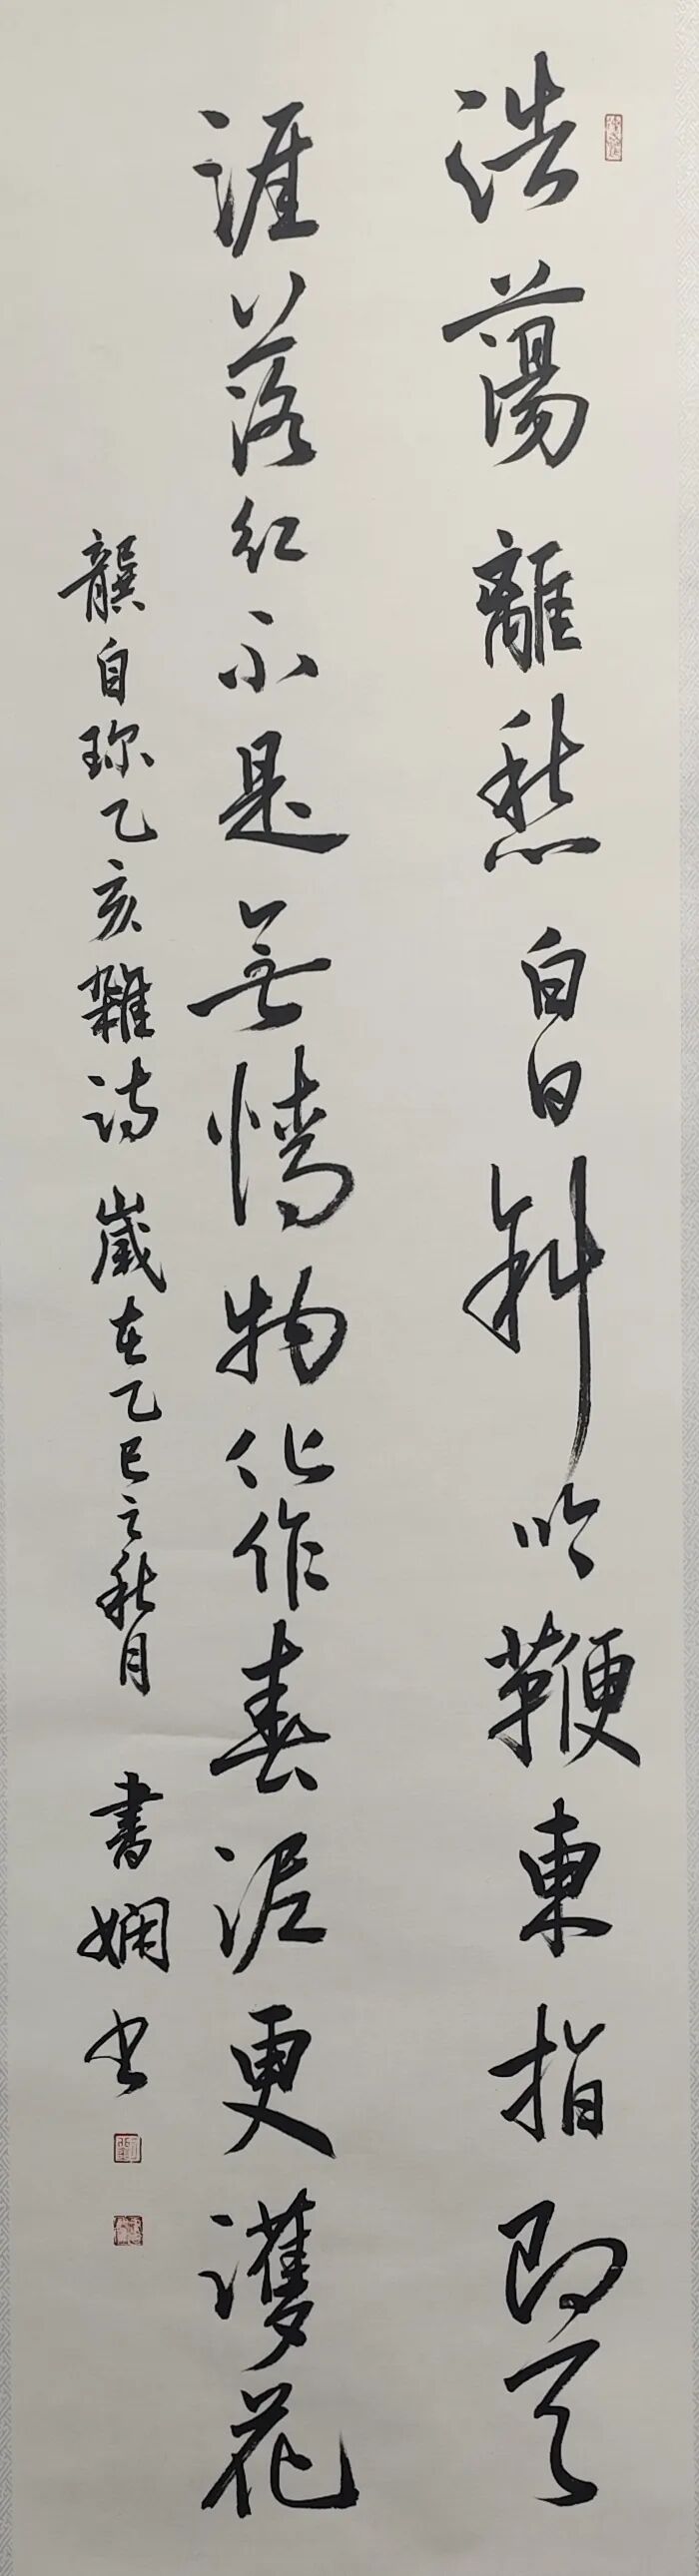 浩蕩離愁白日斜吟鞭東指即天
涯落紅不是無情物化作春泥更護花
龔自珍乙亥雜詩 歲在乙巳之秋月 書嫻书